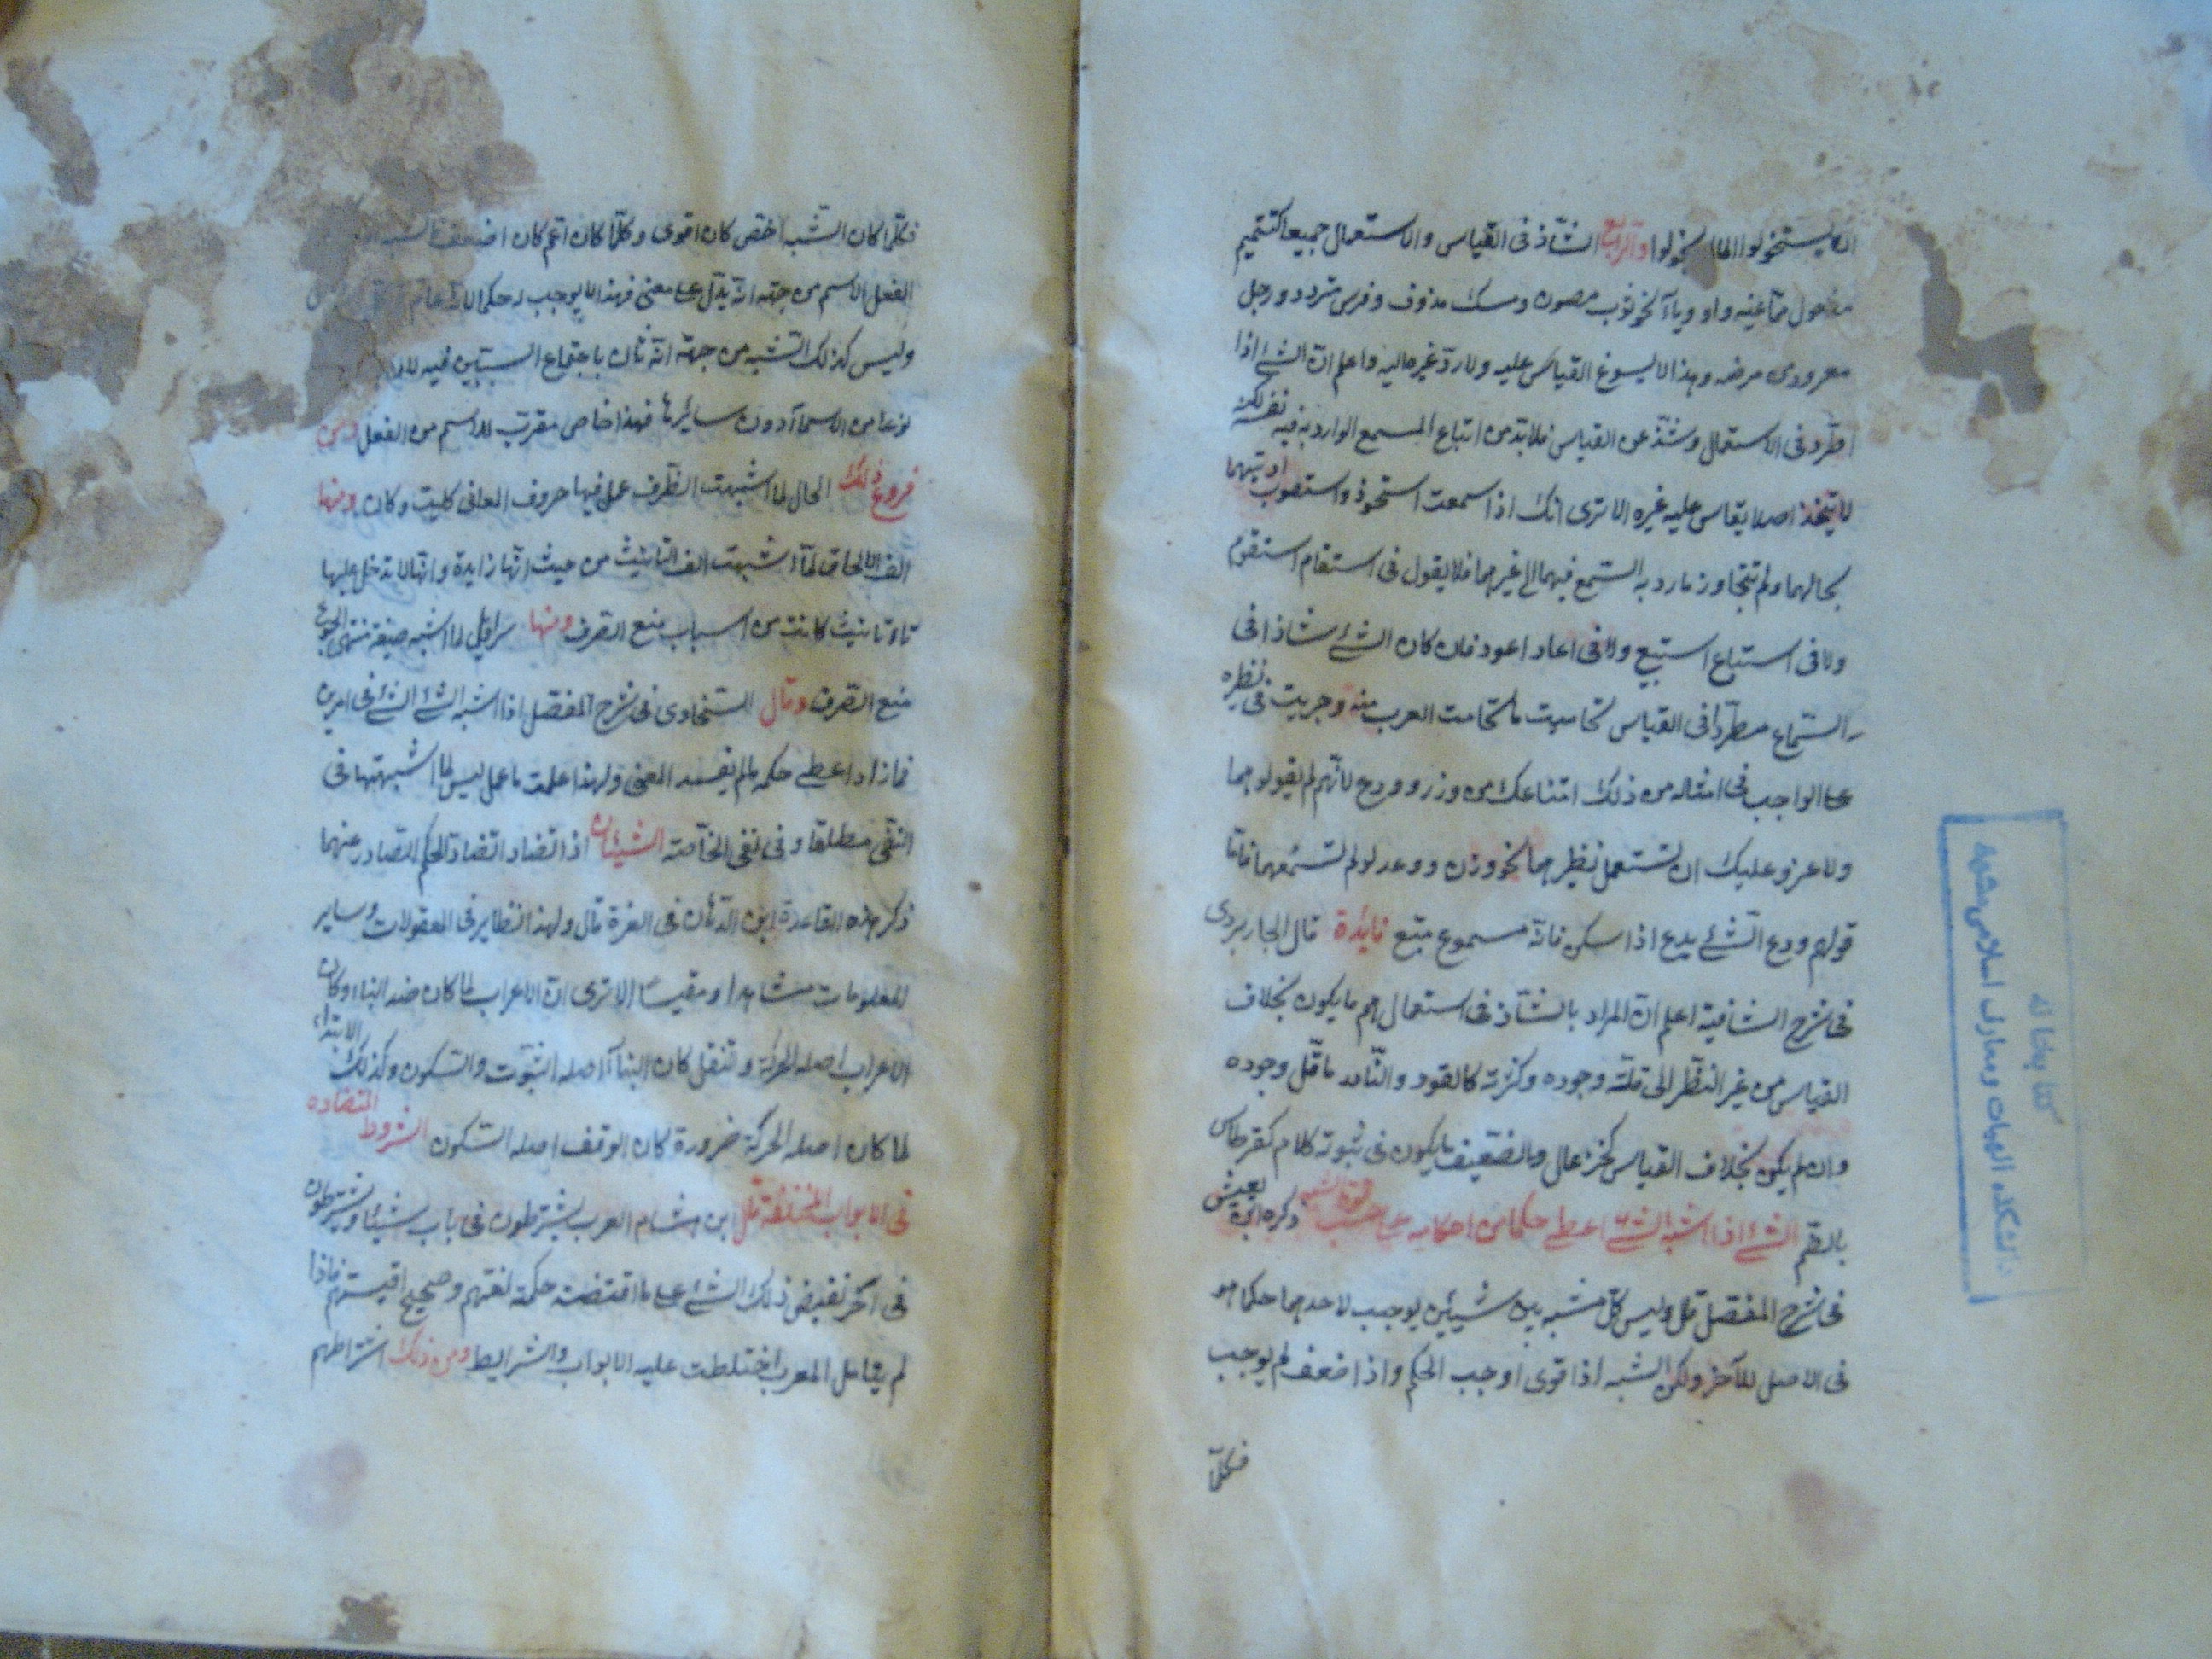 الشاذ فى القياس والاستعمال جميعا كتتميم
مفعول مما عينه واو وياء نحو ثوب مصون ومسك مدووف وفرس مقوود ورجل
معوود من مرضه وهذا لا يسوغ القياس عليه ولا رد غيره اليه واعلم ان الشئ اذا
اطرد فى الاستعمال وشذ عن القياس فلا بد من اتباع السمع الوارد به فيه نفسه لكنه
لا يتخذ اصلا يقاس عليه غيره الا ترى انك اذا سمعت استحوذ واستصوب اديتهما
بحالهما ولم تتجاوز ما ورد به السمع فيهما الى غيرهما فلا يقول فى استقام استقوم
ولا فى استباع استبيع ولا فى اعاد اعود فان كان الشئ شاذا فى
السماع مطردا فى القياس تحاميت ما تحامت العرب منه وجريت فى نظيره
على الواجب فى امثاله من ذلك امتناعك من وذر وودع لانهم لم يقولوهما
ولا غرو عليك ان تستعمل نظيرهما نحو وزن ووعد لو لم تسمعهما فاما
قولهم ودع الشئ يدع اذا سكن فانه مسموع متبع فايدة قال الجاربردى
فى شرح الشافية اعلم ان المراد بالشاذ فى استعمالهم ما يكون بخلاف
القياس من غير النظر الى قلة وجوده وكثرته كالقود والنادر ما قل وجوده
وان لم يكن بخلاف القياس كخزعال والضعيف ما يكون فى ثبوته كلام كقرطاس
بالضم الشئ اذا اشبه الشئ اعطى حكما من احكامه على حسب قوة الشبه ذكره ابن يعيش
فى شرح المفصل قال وليس كل شبه بين شيئين يوجب لاحدهما حكما هو
فى الاصل للآخر ولكن الشبه اذا قوى اوجب الحكم واذا ضعف لم يوجب
فكلما
كتابخانه
دانشكده الهيات ومعارف اسلامى مشهد
فكلما كان الشبه اخص كان اقوى وكلما كان اعم كان اضعف
الفعل الاسم من جهة انه يدل على معنى فهذا لا يوجب له حكما لانه عام
وليس كذلك الشبه من جهة انه ثان باجتماع السببين فيه لان
نوعا من الاسماء دون سايرها فهذا خاص مقرب للاسم من الفعل ومن
فروع ذلك الحال لما اشبهت الظرف عمل فيها حروف المعانى كليت وكان ومنها
الف الالحاق لما اشبهت الف التانيث من حيث انها زايدة وانها لا تدخل عليها
تاء تانيث كانت من اسباب منع الصرف ومنها سراويل لما اشبه صيغة منتهى الجموع
منع الصرف وقال السخاوى فى شرح المفصل اذا اشبه الشئ الشئ فى امرين
فما زاد اعطى حكمه ما لم يفسد المعنى ولهذا عملت ما عمل ليس لما اشبهتها فى
النفى مطلقا وفى نفى الخاصة الشيئان اذا تضادا تضاد الحكم الصادر عنهما
ذكر هذه القاعدة ابن الدهان فى الغرة قال ولهذا نظاير فى المعقولات وساير
المعلومات مشاهدا ومقيسا الا ترى ان الاعراب لما كان ضد البناء وكان
الاعراب اصله الحركة والتنقل كان البناء اصله الثبوت والسكون وكذلك الابتداء
لما كان اصله الحركة ضرورة كان الوقف اصله السكون الشروط المتضادة
فى الابواب المختلفة قال ابن هشام العرب يشترطون فى باب شيئا ويشترطون
فى آخر نقيض ذلك الشئ على ما اقتضته حكمة لغتهم وصحيح اقيستهم فاذا
لم يتامل المعرب اختلطت عليه الابواب والشرايط ومن ذلك اشتراطهم